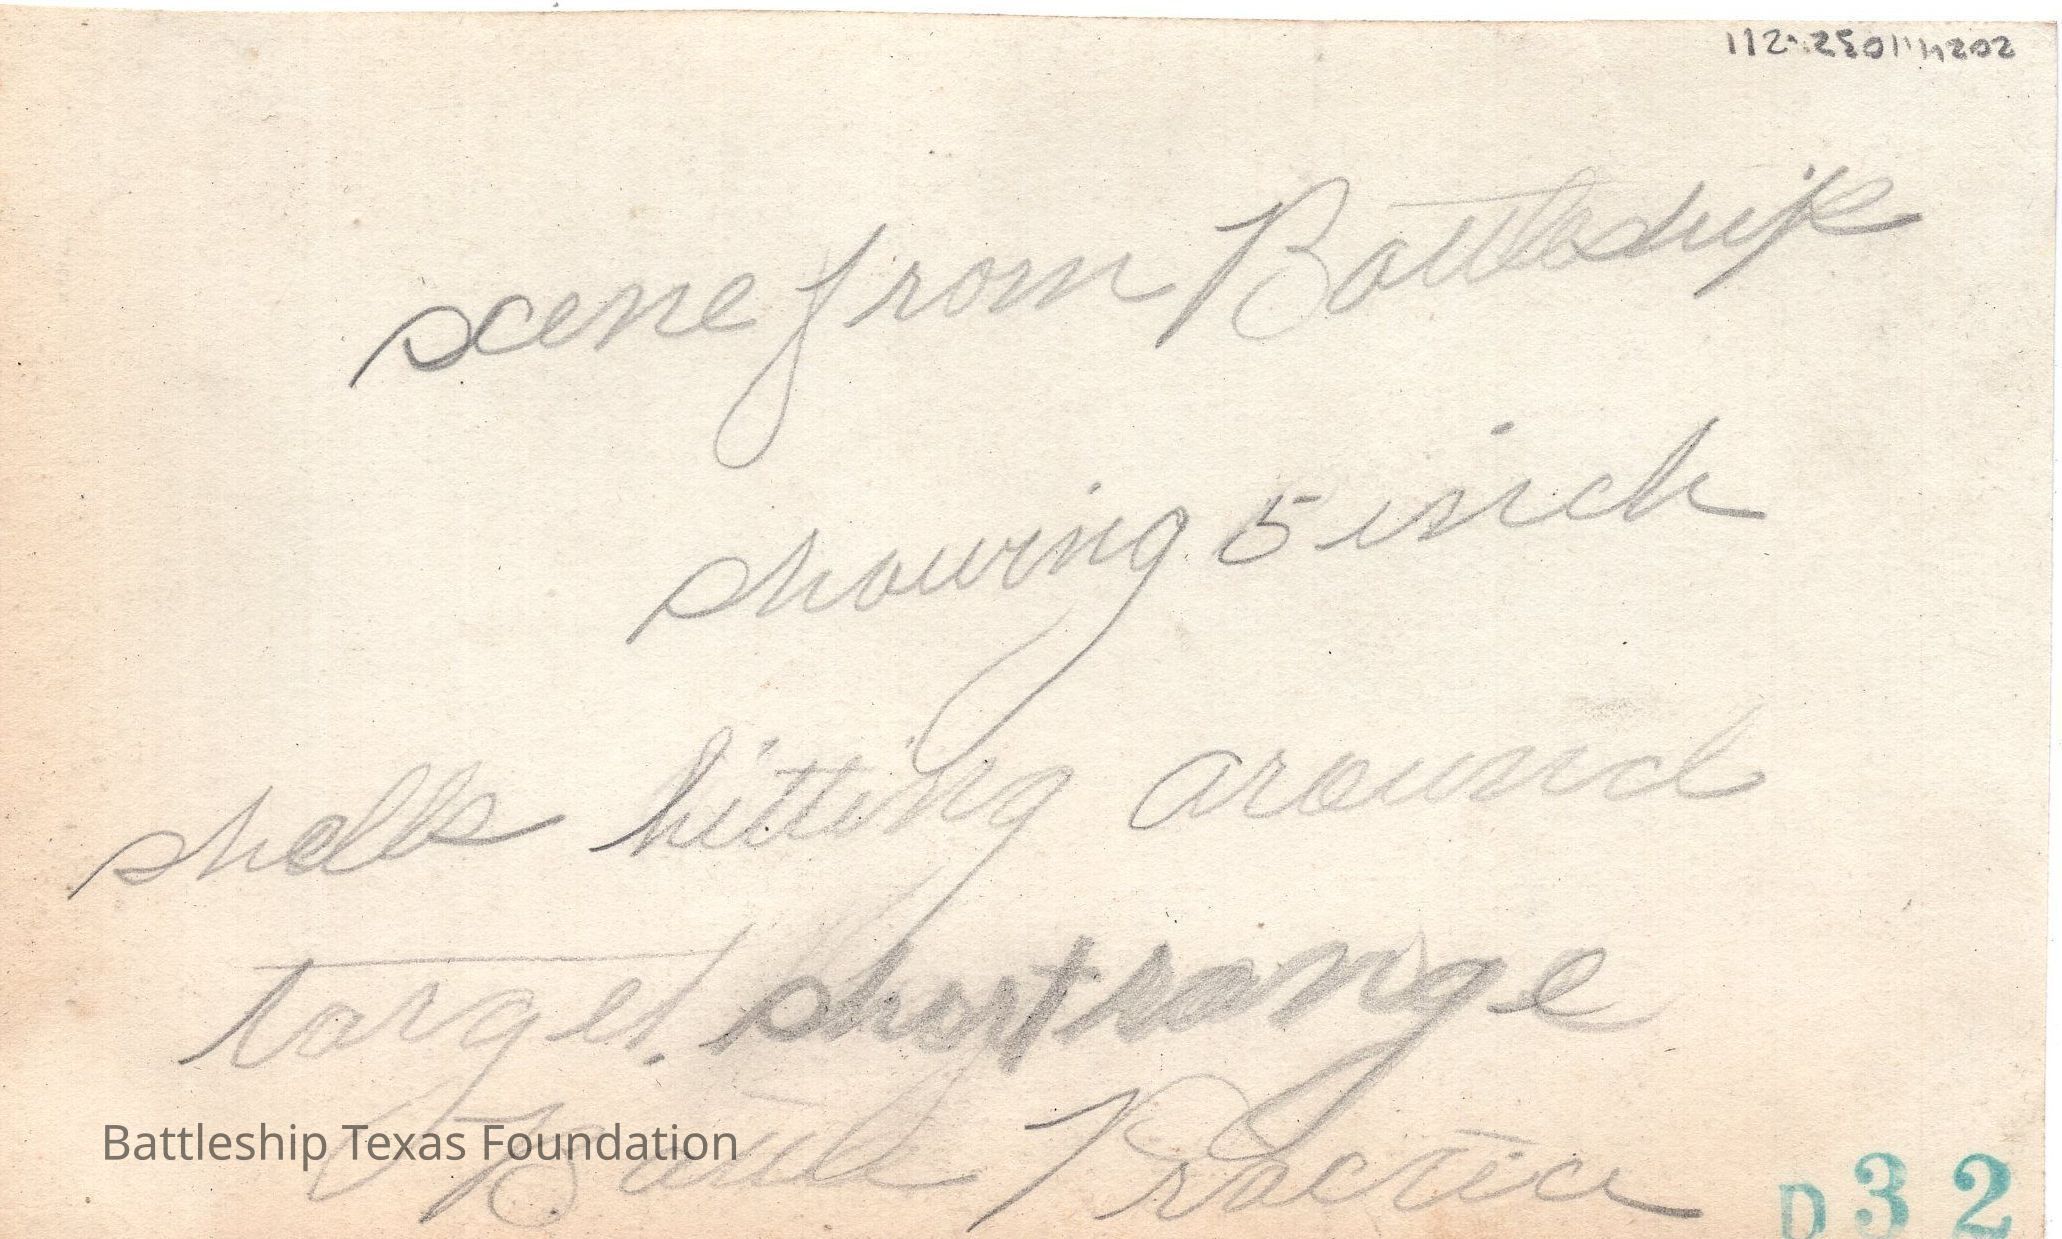 scene from Battleship
showing 5 inch
shells hitting around
target. short range
Battle Practice
Battleship Texas Foundation
D 3 2